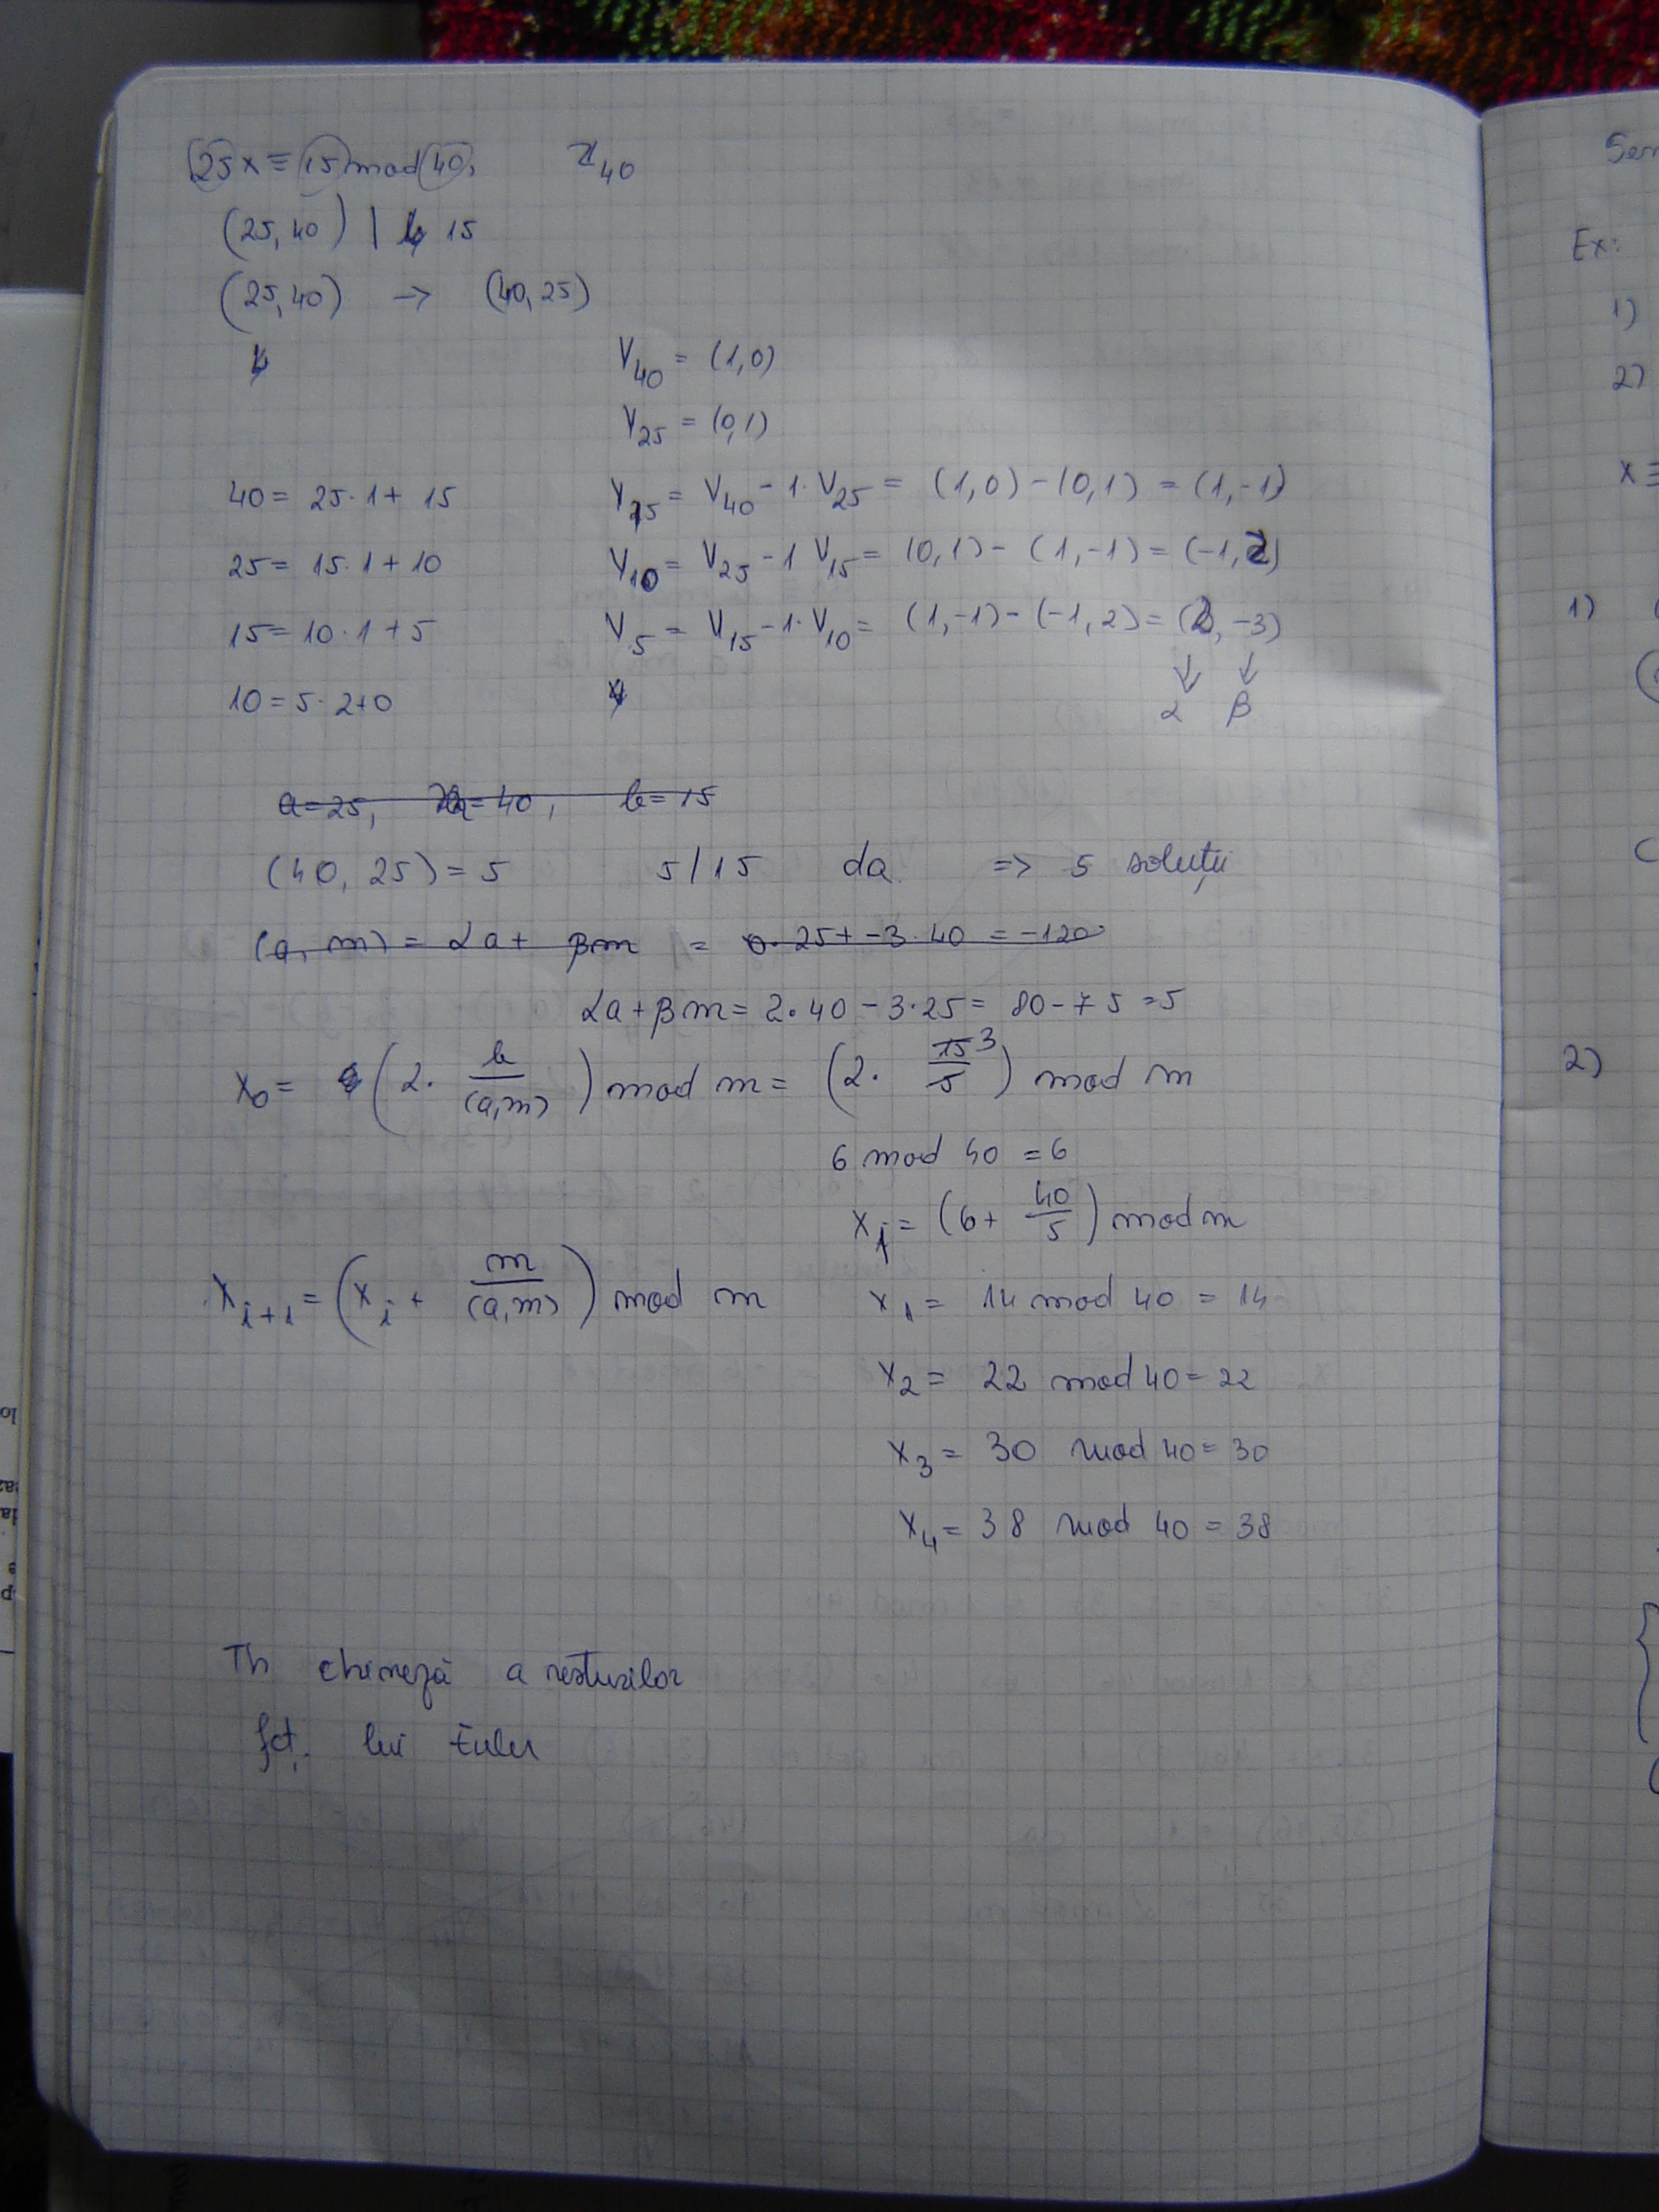 25x ≡ 15 mod 40, ℤ₄₀
(25,40) | 15
(25,40) → (40,25)
V₄₀ = (1,0)
V₂₅ = (0,1)
40 = 25·1 + 15 V₁₅ = V₄₀ - 1·V₂₅ = (1,0) - (0,1) = (1,-1)
25 = 15·1 + 10 V₁₀ = V₂₅ - 1 V₁₅ = (0,1) - (1,-1) = (-1,2)
15 = 10·1 + 5 V₅ = V₁₅ - 1·V₁₀ = (1,-1) - (-1,2) = (2,-3)
↓ ↓
10 = 5·2+0 α β
a=25, m=40, b=15
(40,25) = 5 5/15 da => 5 soluții
(a, m) = αa + βm = 0·25 + -3·40 = -120
αa + βm = 2·40 - 3·25 = 80 - 75 = 5
x₀ = (2· b/(a,m)) mod m = (2· 15/5 3) mod m
6 mod 40 = 6
x₁ = (6 + 40/5) mod m
xᵢ₊₁ = (xᵢ + m/(a,m)) mod m x₁ = 14 mod 40 = 14
x₂ = 22 mod 40 = 22
x₃ = 30 mod 40 = 30
x₄ = 38 mod 40 = 38
Th chineză a resturilor
fct. lui Euler
Ex:
1)
2)
x ≡
1)
2)